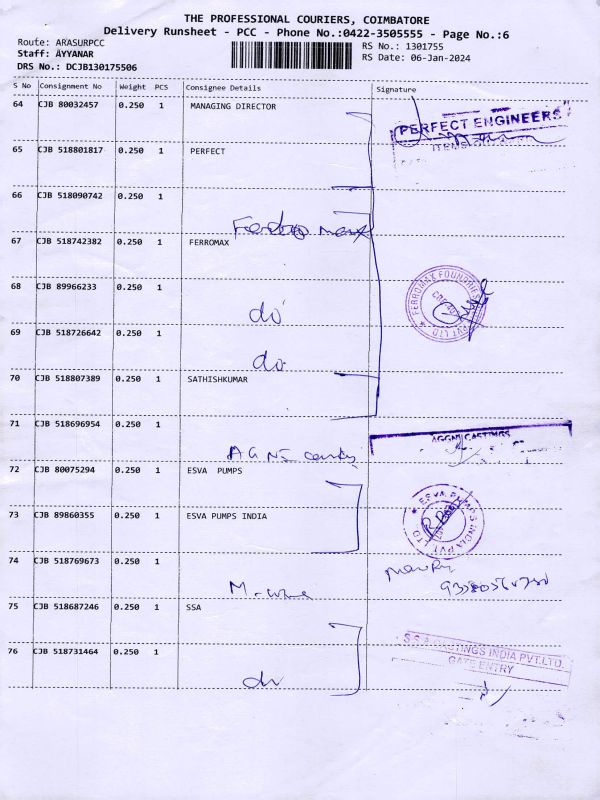 THE PROFESSIONAL COURIERS, COIMBATORE
Delivery Runsheet - PCC - Phone No.:0422-3505555 - Page No.:6
Route: ARASURPCC
RS No.: 1301755
Staff: AYYANAR
RS Date: 06-Jan-2024
DRS No.: DCJB130175506
S No Consignment No Weight PCS Consignee Details Signature
64 CJB 80032457 0.250 1 MANAGING DIRECTOR
PERFECT ENGINEERS
65 CJB 518801817 0.250 1 PERFECT
66 CJB 518090742 0.250 1
67 CJB 518742382 0.250 1 FERROMAX
68 CJB 89966233 0.250 1 do
FERROMAX FOUNDRIES PVT LTD
69 CJB 518726642 0.250 1 do
70 CJB 518807389 0.250 1 SATHISHKUMAR
71 CJB 518696954 0.250 1
AGGNI CASTINGS
72 CJB 80075294 0.250 1 ESVA PUMPS
73 CJB 89860355 0.250 1 ESVA PUMPS INDIA
ESVA PUMPS INDIA PVT LTD
74 CJB 518769673 0.250 1
75 CJB 518687246 0.250 1 SSA
76 CJB 518731464 0.250 1 do
S.S.A CASTINGS INDIA PVT.LTD.
GATE ENTRY